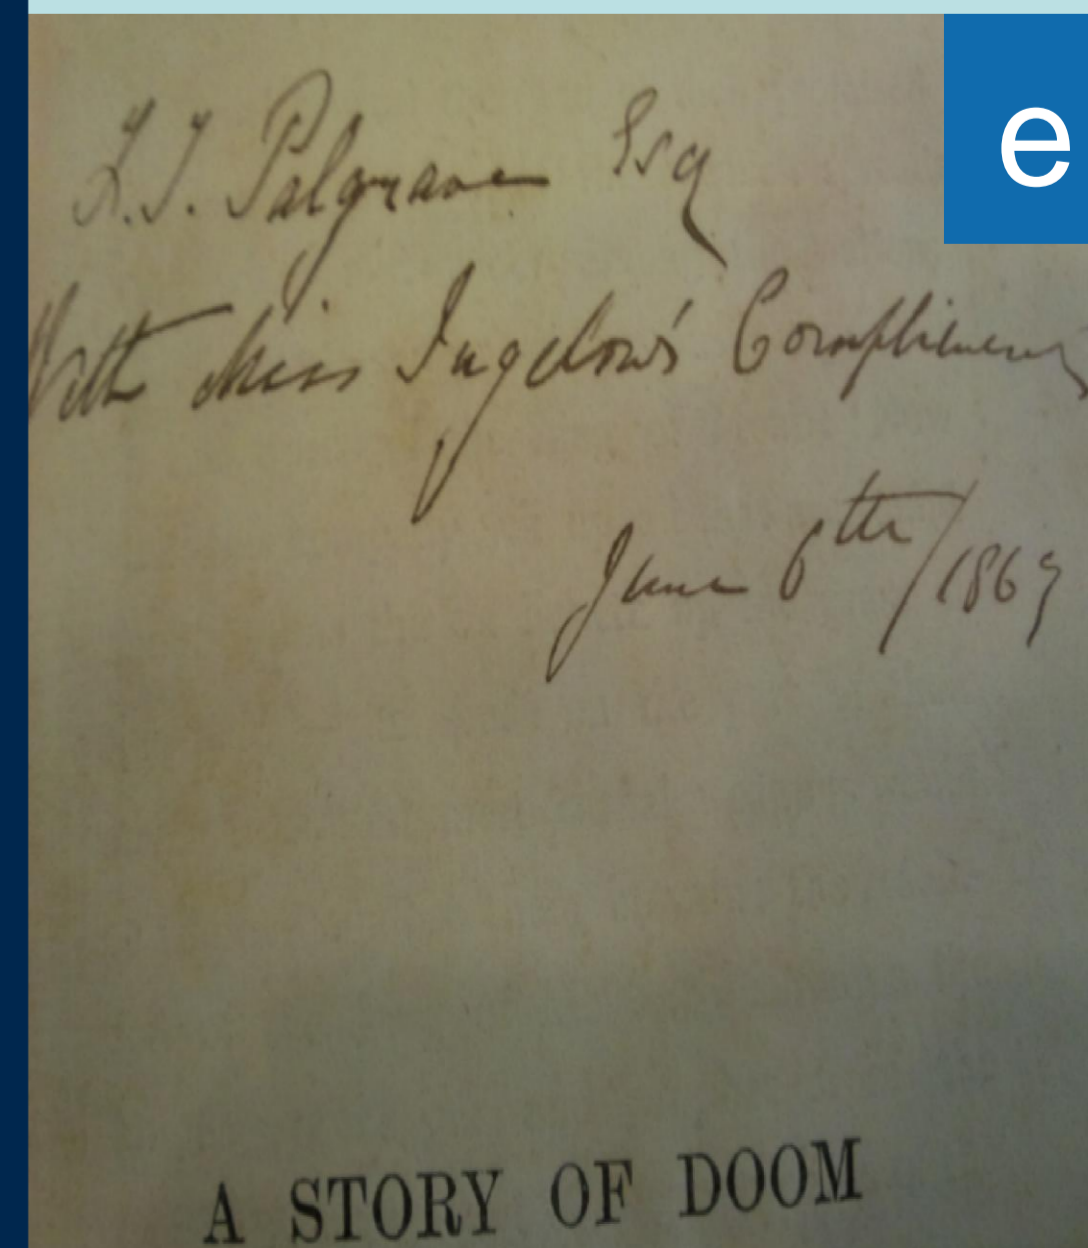 F.T. Palgrave Esq
With Miss Ingelow's Compliments
June 6th/1867
A STORY OF DOOM
e